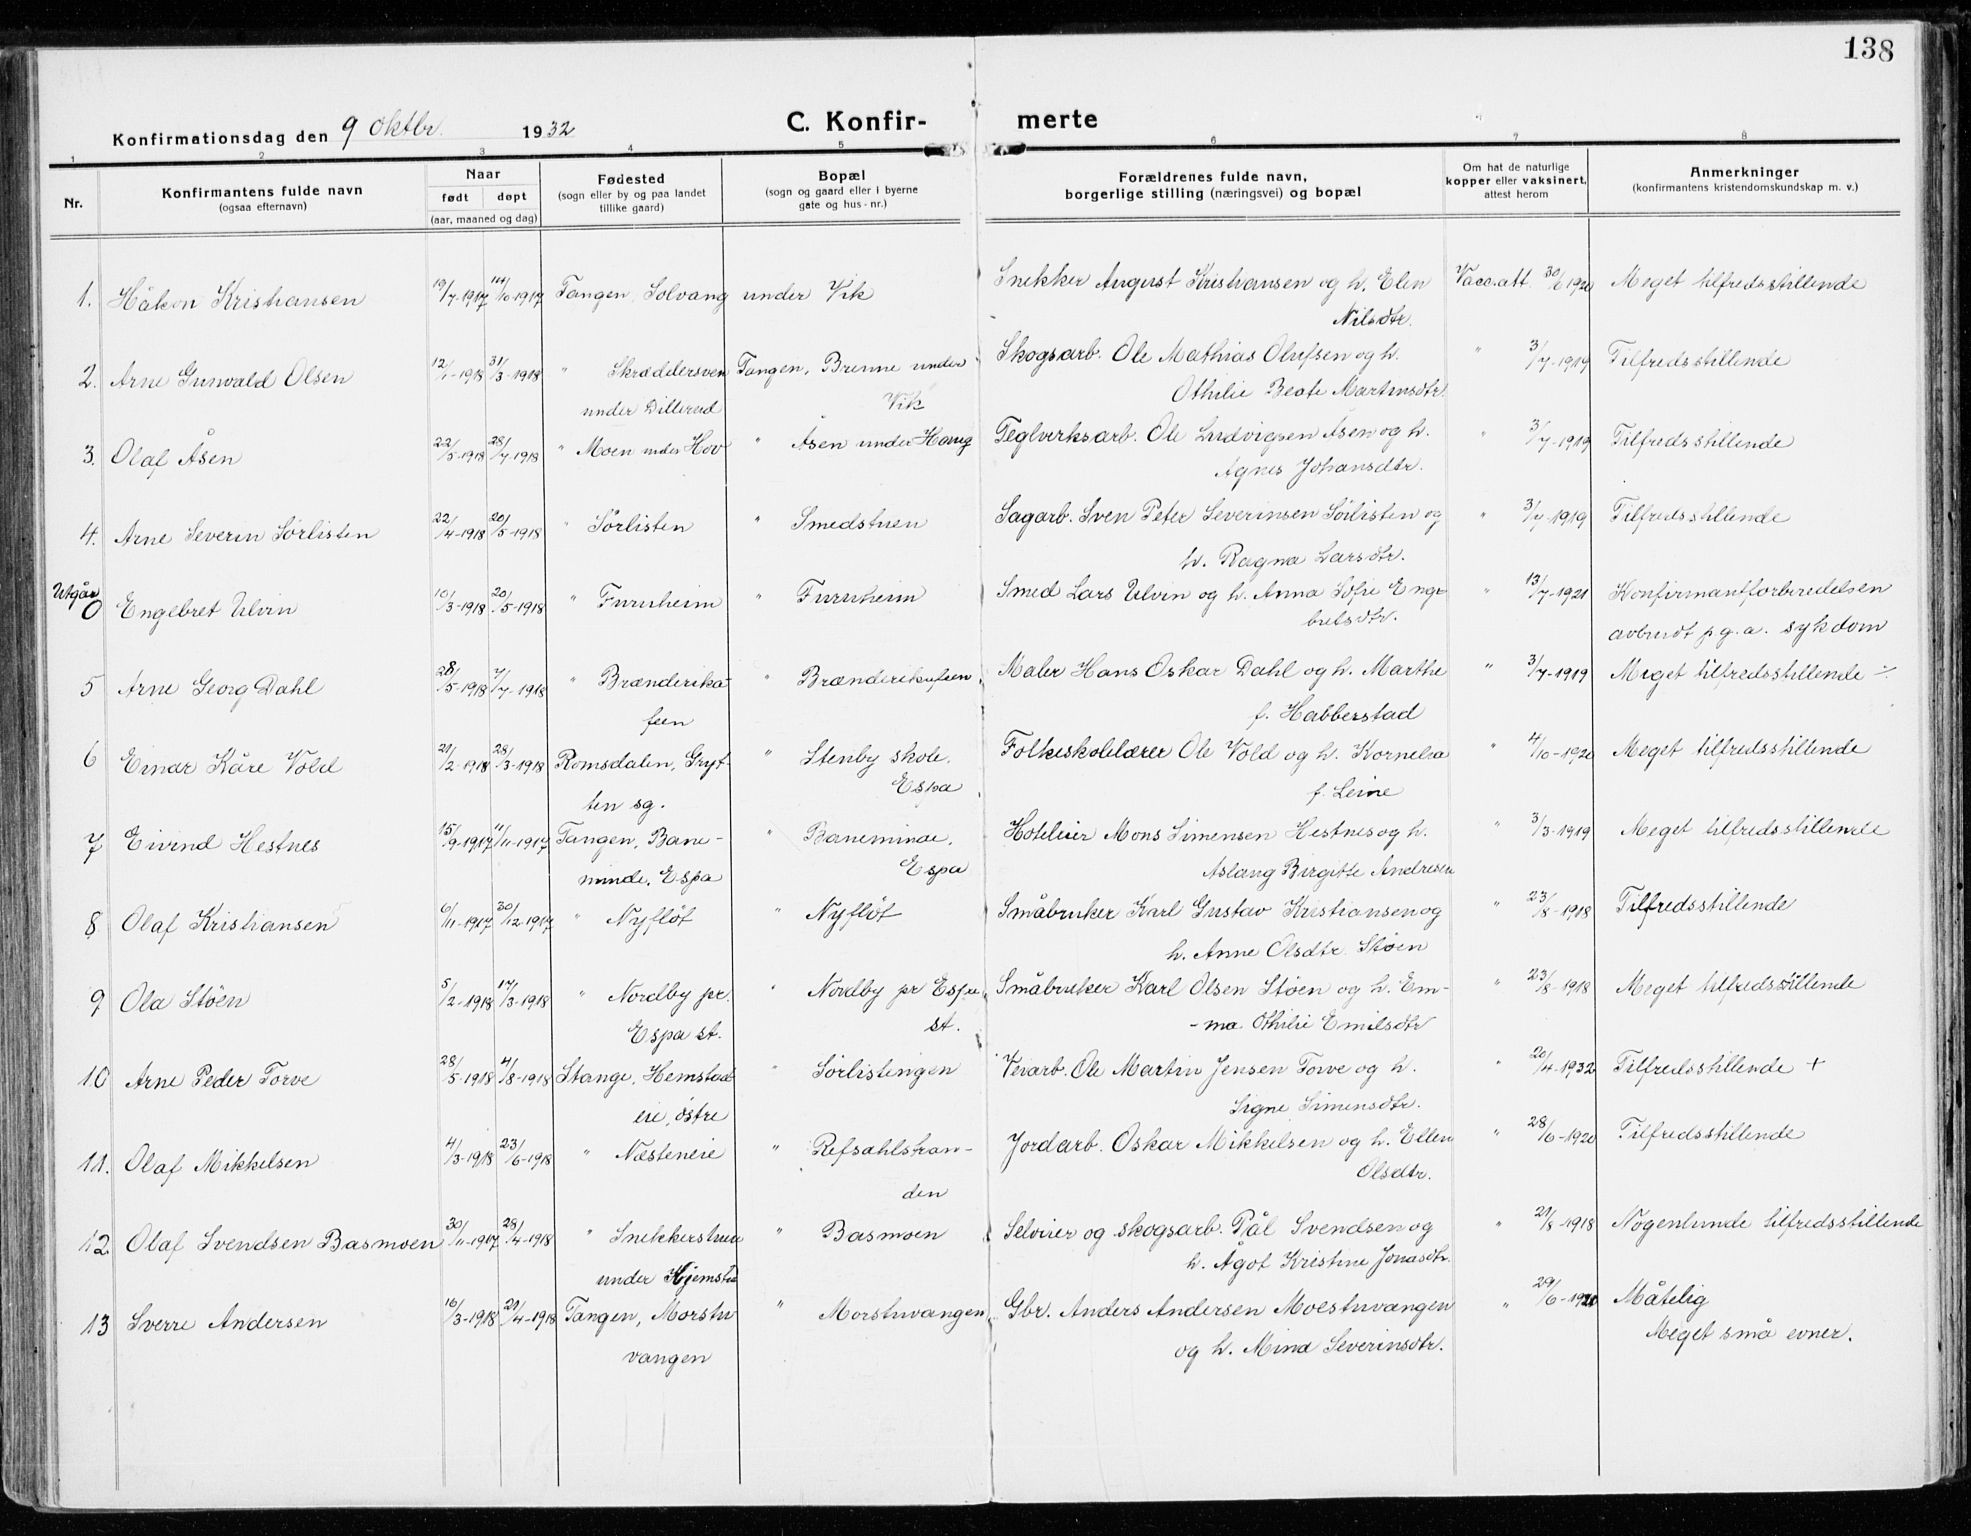 138
C. Konfirmerte
Konfirmationsdag den 9 Oktbr. 1932
1 2 3 4 5 6 7 8
Nr.
Konfirmantens fulde navn
(ogsaa efternavn)
Naar
født døpt
(aar, maaned og dag)
Fødested
(sogn eller by og paa landet
tillike gaard)
Bopæl
(sogn og gaard eller i byerne
gate og hus-nr.)
Forældrenes fulde navn,
borgerlige stilling (næringsvei) og bopæl
Om hat de naturlige
kopper eller vaksinert,
attest herom
Anmerkninger
(konfirmantens kristendomskundskap m. v.)
1. Håkon Kristiansen 19/7-1917 14/10-1917 Tangen, Solvang under Vik Snekker August Kristiansen og h. Elen Vacc.att. 30/6 1920 Meget tilfredsstillende
Nilsdtr.
2. Arne Gunvald Olsen 12/1-1918 31/3-1918 " Skræddersven Tangen, Brenne under Skogsarb. Ole Mathias Olufsen og h. " 3/7-1919 Tilfredsstillende
under Dillerud Vik Othilie Beate Martinsdtr.
3. Olaf Åsen 22/5-1918 28/7-1918 " Moen under Hov " Åsen under Haug Teglverksarb. Ole Ludvigsen Åsen og h. " 3/7-1919 Tilfredsstillende
Agnes Johansdtr.
4. Arne Severin Sörlisten 22/4-1918 20/5-1918 " Sörlisten " Smedstuen Sagarb. Sven Peter Severinsen Sörlisten og " 3/7-1919 Tilfredsstillende
h. Ragna Larsdtr.
Utgår
0 Engebret Ulvin 10/3-1918 20/5-1918 " Furuheim " Furuheim Smed Lars Ulvin og h. Anna Sofie Enge- " 13/7-1921 Konfirmantforberedelsen
bretsdtr. avbrudt p.g.a. sykdom
5 Arne Georg Dahl 28/5-1918 7/7-1918 " Brænderika- " Brænderikafeen Maler Hans Oskar Dahl og h. Marthe " 3/7-1919 Meget tilfredsstillende ÷
feen f. Habberstad
6 Einar Kåre Vold 21/2-1918 28/3-1918 Romsdalen, Gryt- " Stenby skole, Folkeskolelærer Ole Vold og h. Kornelia " 4/10-1920 Meget tilfredsstillende
ten sg. Espa f. Leine
7 Eivind Hestnes 15/9-1917 11/11-1917 Tangen, Bane- " Baneminde, Hoteleier Mons Simensen Hestnes og h. " 3/3-1919 Meget tilfredsstillende
minde, Espa Espa Aslaug Birgitte Andresen
8. Olaf Kristiansen 6/11-1917 30/12-1917 " Nyflöt " Nyflöt Småbruker Karl Gustav Kristiansen og " 23/8-1918 Tilfredsstillende
h. Anne Olsdtr. Støen
9 Ola Støen 5/2-1918 17/3-1918 " Nordby pr. " Nordby pr Espa Småbruker Karl Olsen Støen og h. Em- " 23/8-1918 Meget tilfredsstillende
Espa st. st. -ma Othilie Emilsdtr
10 Arne Peder Torve 28/5-1918 4/8-1918 Stange, Hemstad " Sörlistingen Veiarb. Ole Martin Jensen Torve og h. " 20/4-1932 Tilfredsstillende +
eie, östre Signe Simensdtr.
11. Olaf Mikkelsen 4/3-1918 23/6-1918 " Næsteneie " Refsahlstran- Jordarb. Oskar Mikkelsen og h. Ellen " 28/6-1920 Tilfredsstillende
den Olsdtr.
12. Olaf Svendsen Basmoen 30/11-1917 28/4-1918 " Snekkerstuen " Basmoen Selveier og skogsarb. Pål Svendsen og " 21/8-1918 Nogenlunde tilfredsstillende
under Hjemstu h. Ågot Kristine Jonasdtr.
13 Sverre Andersen 16/3-1918 21/4-1918 Tangen, Morstu " Morstuvangen Gbr. Anders Andersen Moestuvangen " 29/6-1921 Måtelig
vangen og h. Mina Severinsdtr. Meget små evner.